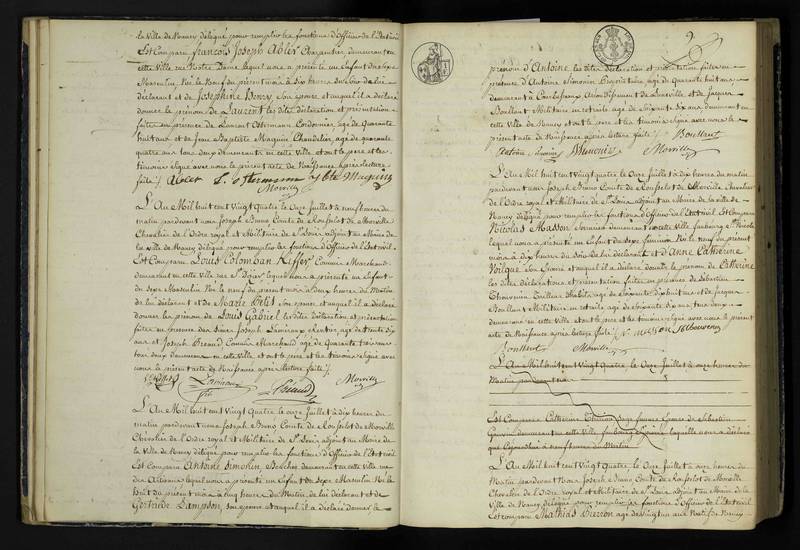 la ville de Nancy délégué pour remplir les fonctions d'Officier de l'état civil
Est Comparu françois Joseph Abler Charpentier, demeurant en
cette ville rue Notre Dame lequel nous a présenté un Enfant du sexe
Masculin, Né le Neuf du présent mois à six heures du soir de lui
déclarant et de Josephine Henry son epouse et auquel il a déclaré
donner le prénom de Laurent les dites déclaration et présentation
faites en présence de Laurent Ostermann Cordonnier, âgé de quarante
huit ans et de Jean Baptiste Marguin Chandelier, âgé de quarante
quatre ans tous deux demeurants en cette ville et ont le pere et les
témoins signé avec nous le présent acte de Naissance après lecture
faite /. Abler L. Ostermann
Morville
L'An Mil huit cent Vingt Quatre le onze Juillet à neuf heures du
matin pardevant nous Joseph Bruno Comte de Rousselot de Morville
Chevalier de l'Ordre royal et Militaire de St Louis adjoint au Maire de
la ville de Nancy délégué pour remplir les fonctions d'Officier de l'Etat civil.
Est Comparu Louis Colomban Kiffer Commis Marchand
demeurant en cette ville rue St Dizier lequel nous a présenté un Enfant
du sexe Masculin Né le neuf du présent mois à deux heures du Matin
de lui déclarant et de Marie Petis son épouse et auquel il a déclaré
donner les prénoms de Louis Gabriel les dites déclaration et présentation
faites en présence des sieurs Joseph Lamiraux Rentier, âgé de trente six
ans et Joseph Bicaud Commis Marchand âgé de Quarante trois ans
tous deux demeurants en cette ville et ont le pere et les témoins signé avec
nous le présent acte de Naissance après lecture faite /.
Morville
L'An Mil huit cent Vingt Quatre le onze Juillet à dix heures du
matin pardevant nous Joseph Bruno Comte de Rousselot de Morville
Chevalier de l'Ordre royal et Militaire de St Louis adjoint au Maire de
la Ville de Nancy délégué pour remplir les fonctions d'Officier de l'Etat civil.
Est Comparu Antoine Simonin, demeurant en cette ville rue
des Artisans lequel nous a présenté un Enfant du sexe Masculin Né le
huit du présent mois à cinq heures du Matin de lui déclarant et de
Gertrude Lampson, son epouse et auquel il a déclaré donner le
prénom d'Antoine les dites déclaration et présentation faites en
présence d'Antoine Simonin Propriétaire âgé de Quarante huit ans
demeurant à Arrondissement de Lunéville et de Jacques
Boullent Militaire en retraite âgé de soixante six ans demeurant en
cette Ville et ont le pere et les témoins signé avec nous le
présent acte de Naissance après lecture faite /. Boullent
Simonin Morville
L'An Mil huit cent Vingt quatre le Onze Juillet à dix heures du matin
pardevant nous Joseph Bruno Comte de Rousselot de Morville Chevalier
de l'Ordre royal et Militaire de St Louis adjoint au Maire de la ville de
Nancy délégué pour remplir les fonctions d'Officier de l'Etat civil Est Comparu
Nicolas Masson demeurant en cette ville faubourg St Nicolas
lequel nous a présenté un Enfant du sexe féminin Né le neuf du présent
mois à dix heures du Soir de lui déclarant et d'Anne Catherine
son Epouse et auquel il a déclaré donner le prénom de Catherine
les dites déclaration et présentation faites en présence de Sébastien
Thouvenin Tailleur d'habits âgé de soixante dix huit ans et de Jacques
Boullent Militaire en retraite âgé de soixante six ans tous deux
demeurants en cette ville et ont le pere et les témoins signé avec nous le présent
acte de Naissance après lecture faite /. N. masson
Boullent Morville
L'An Mil huit cent Vingt Quatre, le Onze Juillet à onze heures du
Matin pardevant nous
Est Comparue Catherine sage femme Epouse de Sébastien
demeurant en cette ville faubourg laquelle nous a déclaré
que Aujourd'hui à neuf heures du Matin
L'An Mil huit cent Vingt Quatre le Onze Juillet à onze heures du
Matin pardevant nous Joseph Bruno Comte de Rousselot de Morville
Chevalier de l'Ordre royal et Militaire de St Louis adjoint au Maire de la
Ville de Nancy délégué pour remplir les fonctions d'Officier de l'Etat civil
Est comparu Mathias Pierron âgé de